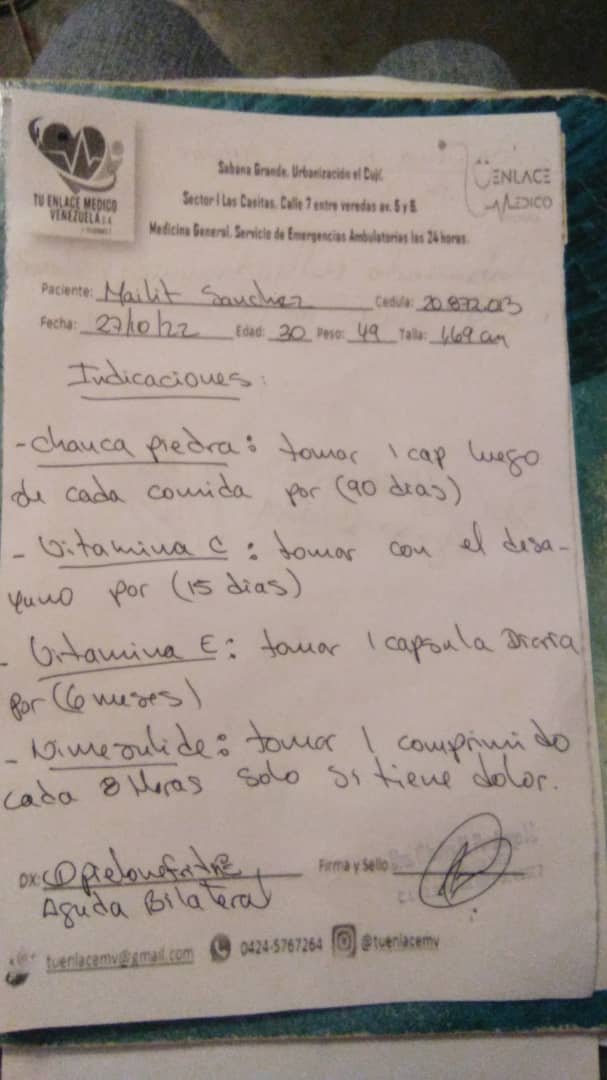 TU ENLACE MEDICO
VENEZUELA
Sabana Grande. Urbanización el Cují.
Sector I Las Casitas. Calle 7 entre veredas av. 5 y 6.
Medicina General. Servicio de Emergencias Ambulatorias las 24 horas.
ENLACE
MEDICO
Paciente: Mailit Sanchez Cedula: 20.872.013
Fecha: 27/10/22 Edad: 30 Peso: 49 Talla: 1,69 cm
Indicaciones:
- Chanca piedra: tomar 1 cap luego
de cada comida por (90 dias)
- Vitamina C: tomar con el desa-
yuno por (15 dias)
- Vitamina E: tomar 1 capsula Diaria
por (6 meses)
- Nimesulide: tomar 1 comprimido
cada 8 Horas solo si tiene dolor.
DX: ① pielonefritis Firma y Sello
Aguda Bilateral
tuenlacemv@gmail.com 0424-5767264 @tuenlacemv